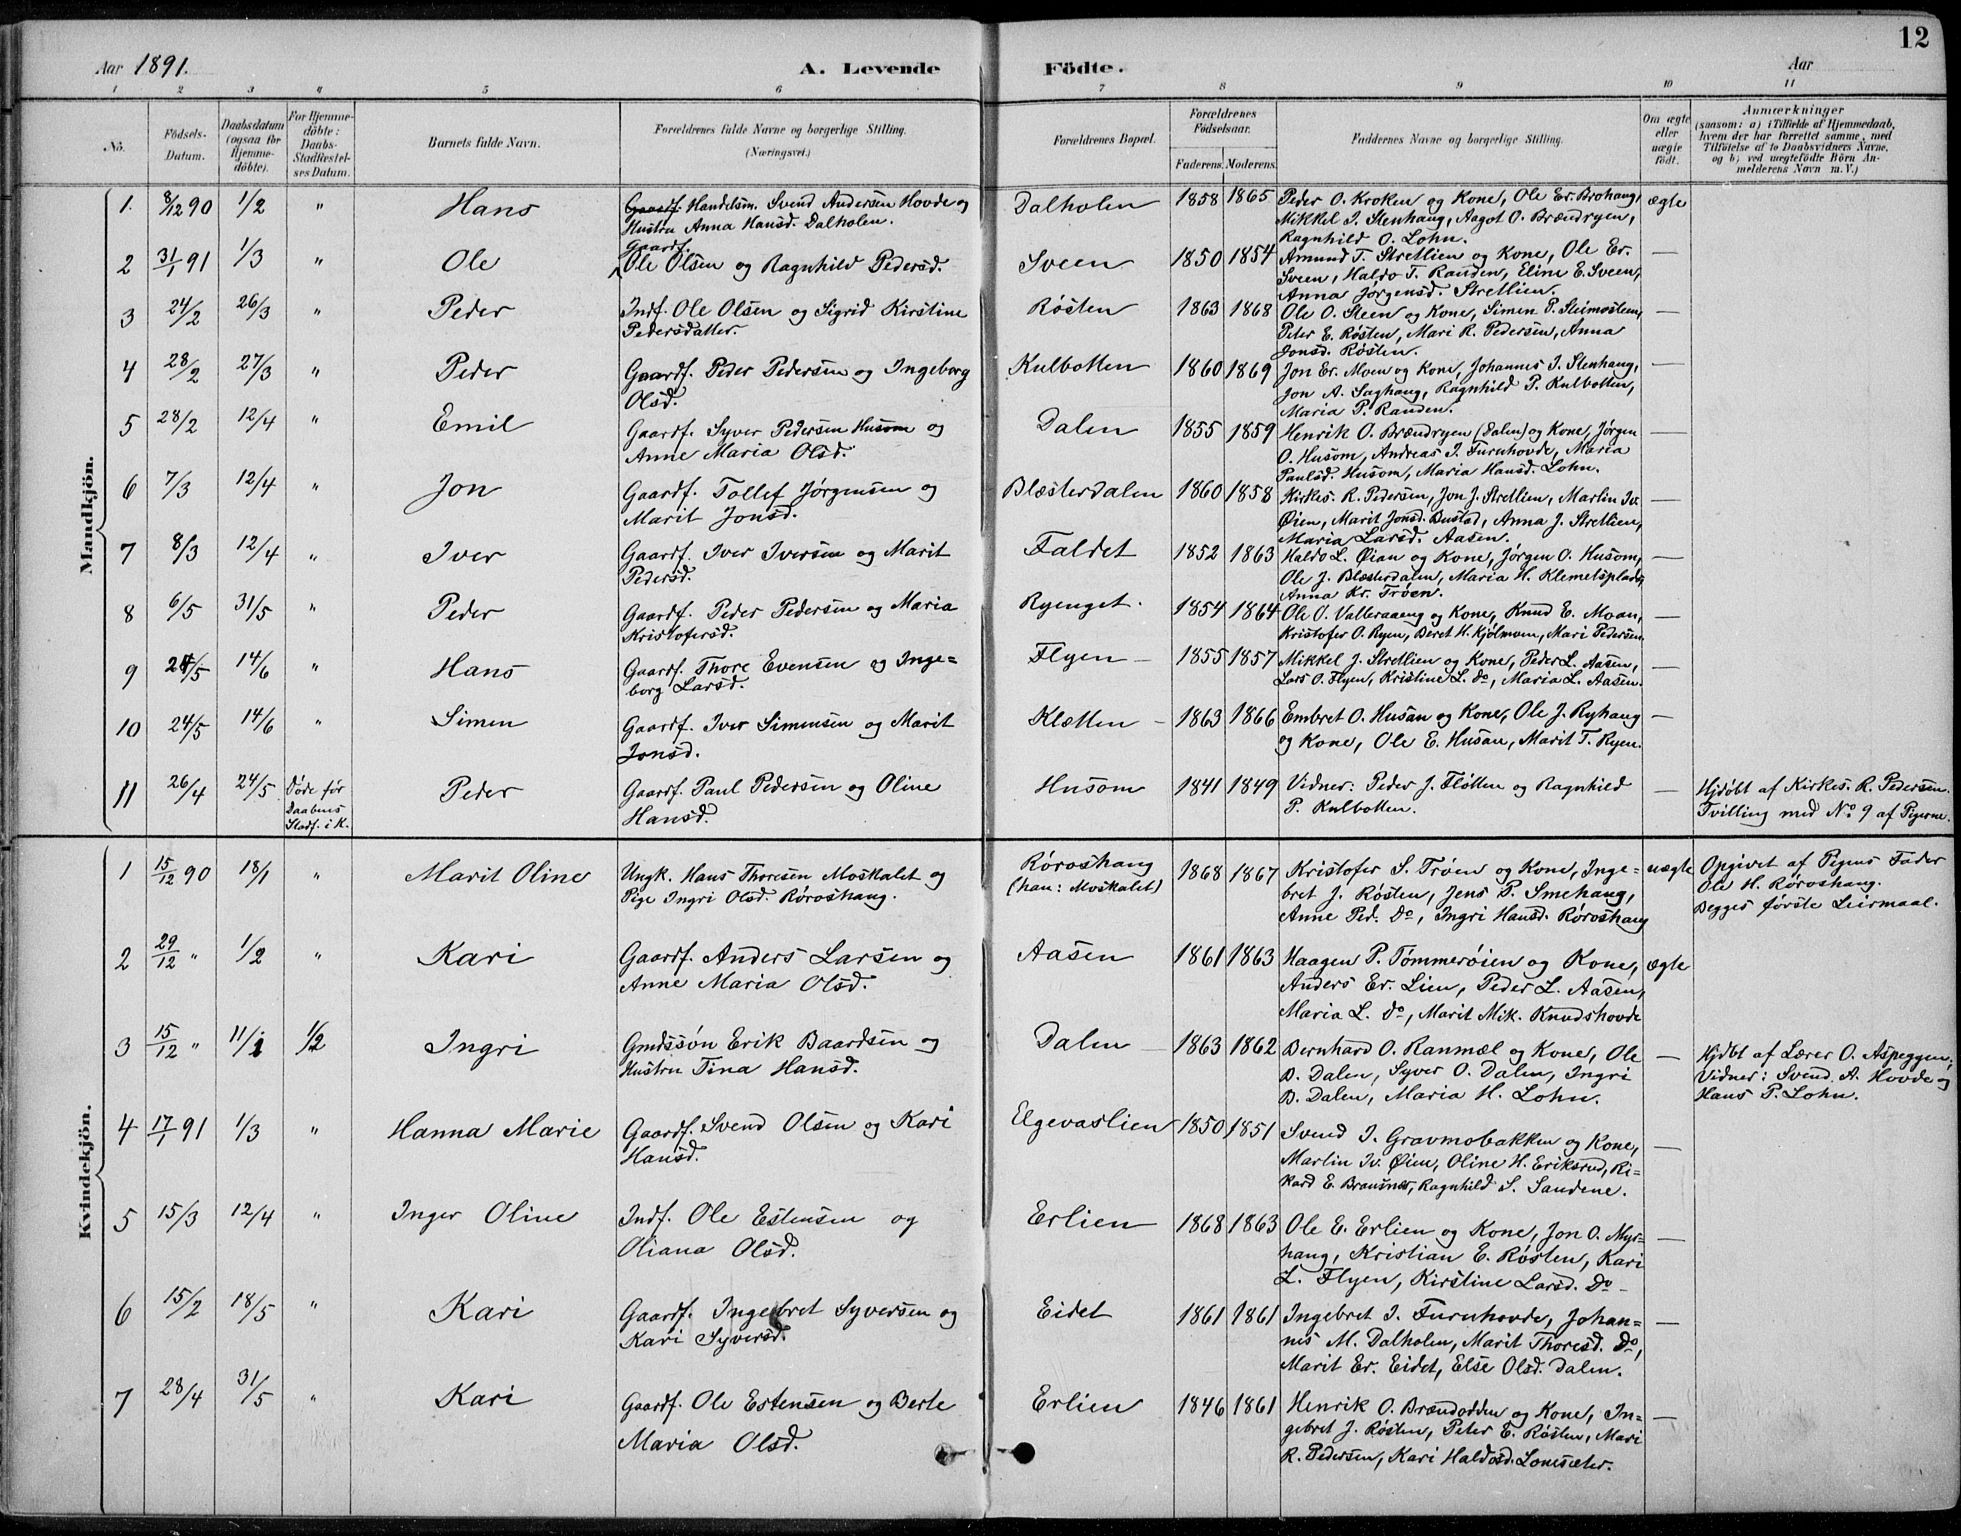 12
Aar 1891. A. Levende Födte. Aar
1 2 3 4 5 6 7 8 9 10 11
No. Födsels-Datum. Daabsdatum (ogsaa for Hjemme-döbte). For Hjemme-döbte: Daabs-Stadfestel-ses Datum. Barnets fulde Navn. Forældrenes fulde Navne og borgerlige Stilling. (Næringsvei.) Forældrenes Bopæl. Forældrenes Födselsaar. Faderens. Moderens. Faddernes Navne og borgerlige Stilling. Om ægte eller uægte födt. Anmærkninger (saasom: a) i Tilfælde af Hjemmedaab, hvem der har forrettet samme, med Tilföielse af to Daabsvidners Navne, og b) ved uægtefödte Börn An-melderens Navn m. V.)
Mandkjön.
1. 8/12 90 1/2 " Hans Gaardf. Handelsm. Svend Andersen Hovde og Dalholen 1858 1865 Peder O. Kroken og Kone, Ole Er. Brohaug, ægte
Hustru Anna Hansd. Dalholen. Mikkel J. Stenhaug, Aagot O. Brændryen,
Ragnhild O. Lohn.
2 31/1 91 1/3 " Ole Gaardf. Ole Olsen og Ragnhild Pedersd. Sveen 1850 1854 Amund T. Stretlien og Kone, Ole Er. —
Sveen, Haldo T. Randen, Eline E. Sveen,
Anna Jørgensd. Stretlien.
3 24/2 26/3 " Peder Indf. Ole Olsen og Sigrid Kirstine Røsten 1863 1868 Ole O. Steen og Kone, Simen P. Steimosleen, —
Pedersdatter. Peter E. Røsten, Mari R. Pedersen, Anna
Jonsd. Røsten.
4 28/2 27/3 " Peder Gaardf. Peder Pedersen og Ingeborg Kulbotten 1860 1869 Jon Er. Moen og Kone, Johannes J. Stenhaug, —
Olsd. Jon A. Saghaug, Ragnhild P. Kulbotten,
Maria P. Randen.
5 28/2 12/4 " Emil Gaardf. Syver Pedersen Husom og Dalen 1855 1859 Henrik O. Brændryen (Dalen) og Kone, Jørgen —
Anne Maria Olsd. O. Husom, Andreas J. Furuhovde, Maria
Paulsd. Husom, Maria Hansd. Lohn.
6 7/3 12/4 " Jon Gaardf. Tollef Jørgensen og Blæsterdalen 1860 1858 Kirkes. R. Pedersen, Jon J. Stretlien, Martin Iv. —
Marit Jonsd. Øien, Marit Jonsd. Bustad, Anna J. Stretlien,
Maria Larsd. Aasen.
7 8/3 12/4 " Iver Gaardf. Iver Iversen og Marit Faldet 1852 1863 Haldo L. Øian og Kone, Jørgen O. Husom, —
Pedersd. Ole J. Blæsterdalen, Maria H. Klemetsplads,
Anna Kr. Trøen.
8 6/5 31/5 " Peder Gaardf. Peder Pedersen og Maria Ryenget. 1854 1864 Ole O. Valbraaeng og Kone, Knud E. Moan, —
Kristofersd. Kristofer O. Ryen, Beret H. Kjølmoen, Mari Pedersen.
9 24/5 14/6 " Hans Gaardf. Thore Evensen og Inge= Flyen — 1855 1857 Mikkel J. Stretlien og Kone, Peder L. Aasen, —
borg Larsd. Lars O. Flyen, Kristine L. do, Maria L. Aasen.
10 24/5 14/6 " Simen Gaardf. Iver Simensen og Marit Kletten — 1863 1866 Embret O. Husan og Kone, Ole J. Ryhaug —
Jonsd. og Kone, Ole E. Husan, Marit T. Ryen.
11 26/4 24/5 Døde før Daabens Stadf. i K. Peder Gaardf. Paul Pedersen og Oline Husom 1841 1849 Vidner: Peder J. Flotten og Ragnhild — Hjdøbt af Kirkes. R. Pedersen.
Hansd. P. Kulbotten. Tvilling med No 9 af Pigerne.
Kvindekjön.
1 15/12 90 18/1 " Marit Oline Ungk. Hans Thoresen Moskalet og Røroshaug 1868 1867 Kristofer S. Trøen og Kone, Inge= uægte Opgivet af Pigens Fader
Pige Ingri Olsd. Røroshaug. (han: Moskalet) bret J. Røsten, Jens P. Smehaug, Ole H. Røroshaug.
Anne Ped. Do, Ingri Hansd. Røroshaug Begges første Leiermaal.
2 29/12 " 1/2 " Kari Gaardf. Anders Larsen og Aasen 1861 1863 Haagen P. Tømmerøien og Kone, ægte
Anne Maria Olsd. Anders Er. Lien, Peder L. Aasen,
Maria L. do, Marit Mik. Knudshovde
3 15/12 " 11/1 1/2 Ingri Gmdssøn Erik Baardsen og Dalen 1863 1862 Bernhard O. Ranmæl og Kone, Ole — Hjdbt af Lærer O. Aspeggen;
Hustru Tina Hansd. B. Dalen, Syver O. Dalen, Ingri Vidner: Svend A. Hovde og
B. Dalen, Maria H. Lohn. Hans P. Lohn.
4 17/1 91 1/3 " Hanna Marie Gaardf. Svend Olsen og Kari Elgevaslien 1850 1851 Svend J. Gravmobakken og Kone, —
Hansd. Martin Iv. Øien, Oline H. Eriksrud, Ri=
kard E. Brausnes, Ragnhild S. Sandene.
5 15/3 12/4 " Inger Oline Indf. Ole Estensen og Erlien 1868 1863 Ole E. Erlien og Kone, Jon O. Myr= —
Oliana Olsd. haug, Kristian E. Røsten, Kari
L. Flyen, Kirstine Larsd. Do
6 15/2 18/5 " Kari Gaardf. Ingebret Syversen og Eidet 1861 1861 Ingebret J. Furuhovde, Johan= —
Kari Syversd. nes M. Dalholen, Marit Thoresd. Do,
Marit Er. Eidet, Else Olsd. Dalen.
7 28/4 31/5 " Kari Gaardf. Ole Estensen og Berte Erlien 1846 1861 Henrik O. Brændodden og Kone, In= —
Maria Olsd. gebret J. Røsten, Peter E. Røsten, Mari
R. Pedersen, Kari Haldosd. Lonesæter.